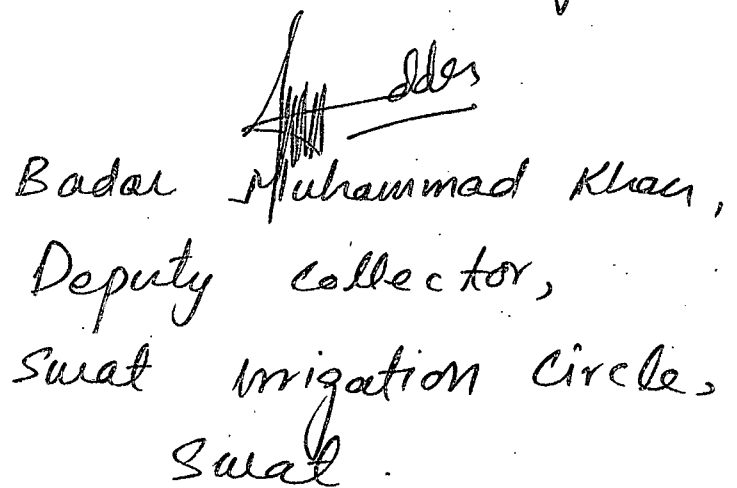 Badar Muhammad Khan,
Deputy collector,
Swat irrigation Circle,
Swat.